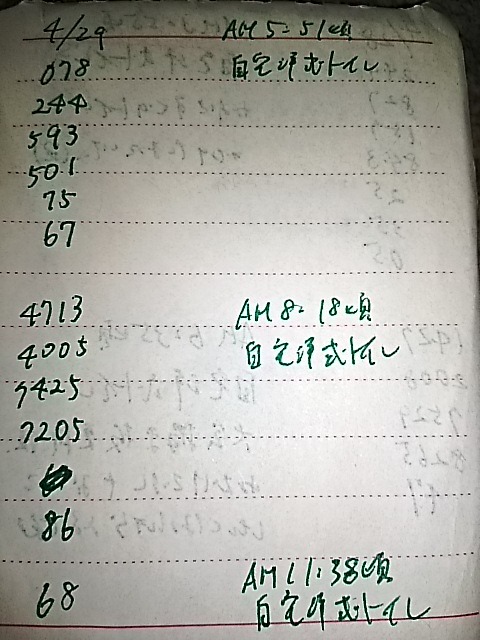 4/29 AM 5:51頃
078 自宅洋式トイレ
244
593
501
75
67
4713 AM 8:18頃
4005 自宅洋式トイレ
7425
7205
86
68 AM 11:38頃
自宅洋式トイレ